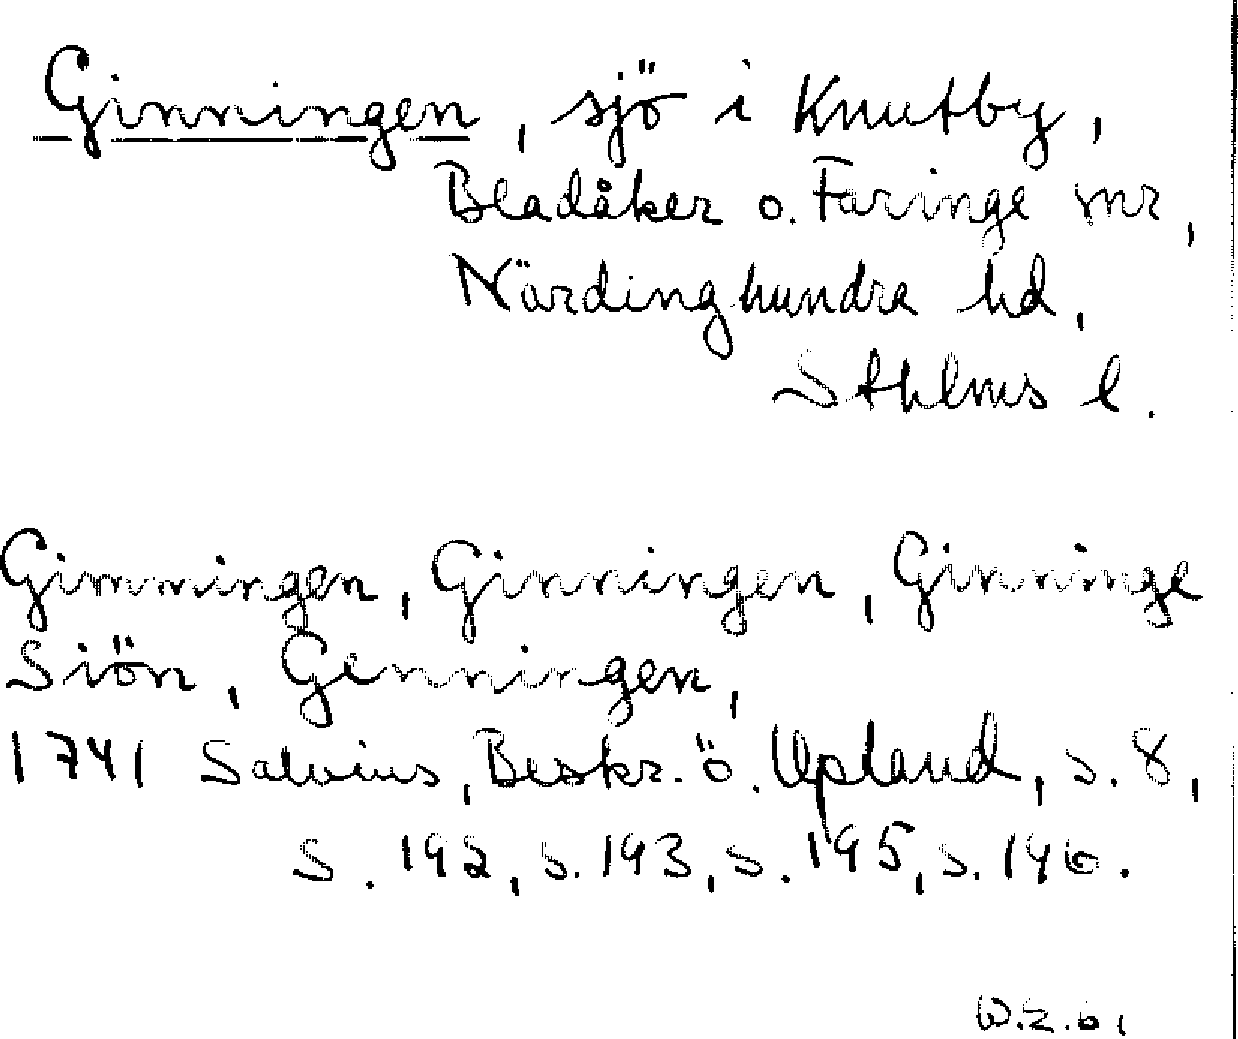 Ginningen, sjö i Knutby,
Bladåker o. Faringe snr,
Närdinghundra hd,
Sthlms l.
Gimmingen, Ginningen, Ginninge
Siön, Genningen,
1741 Salvius, Beskr. ö. Upland, s. 8,
s. 192, s. 193, s. 195, s. 196.
W.Z. 61